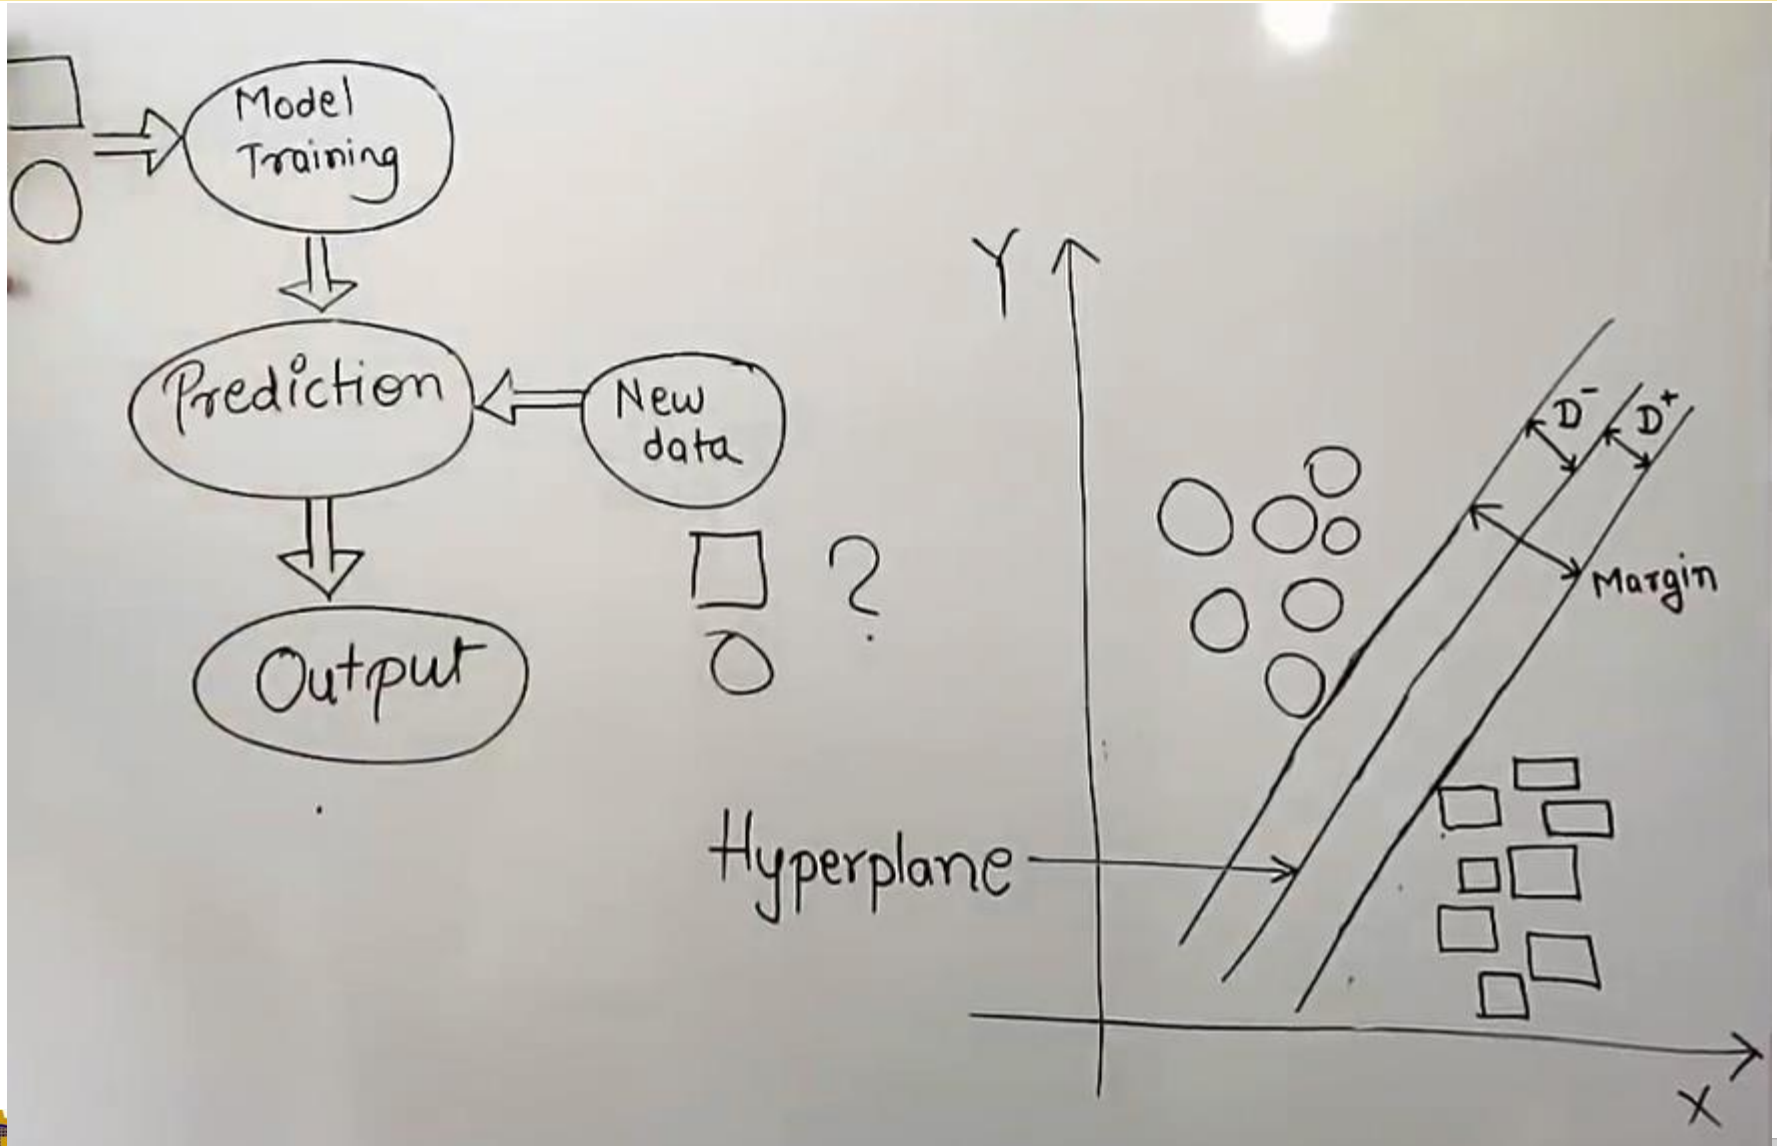 Model
Training
Prediction
New
data
?
Output
Y
D⁻
D⁺
Margin
Hyperplane
X